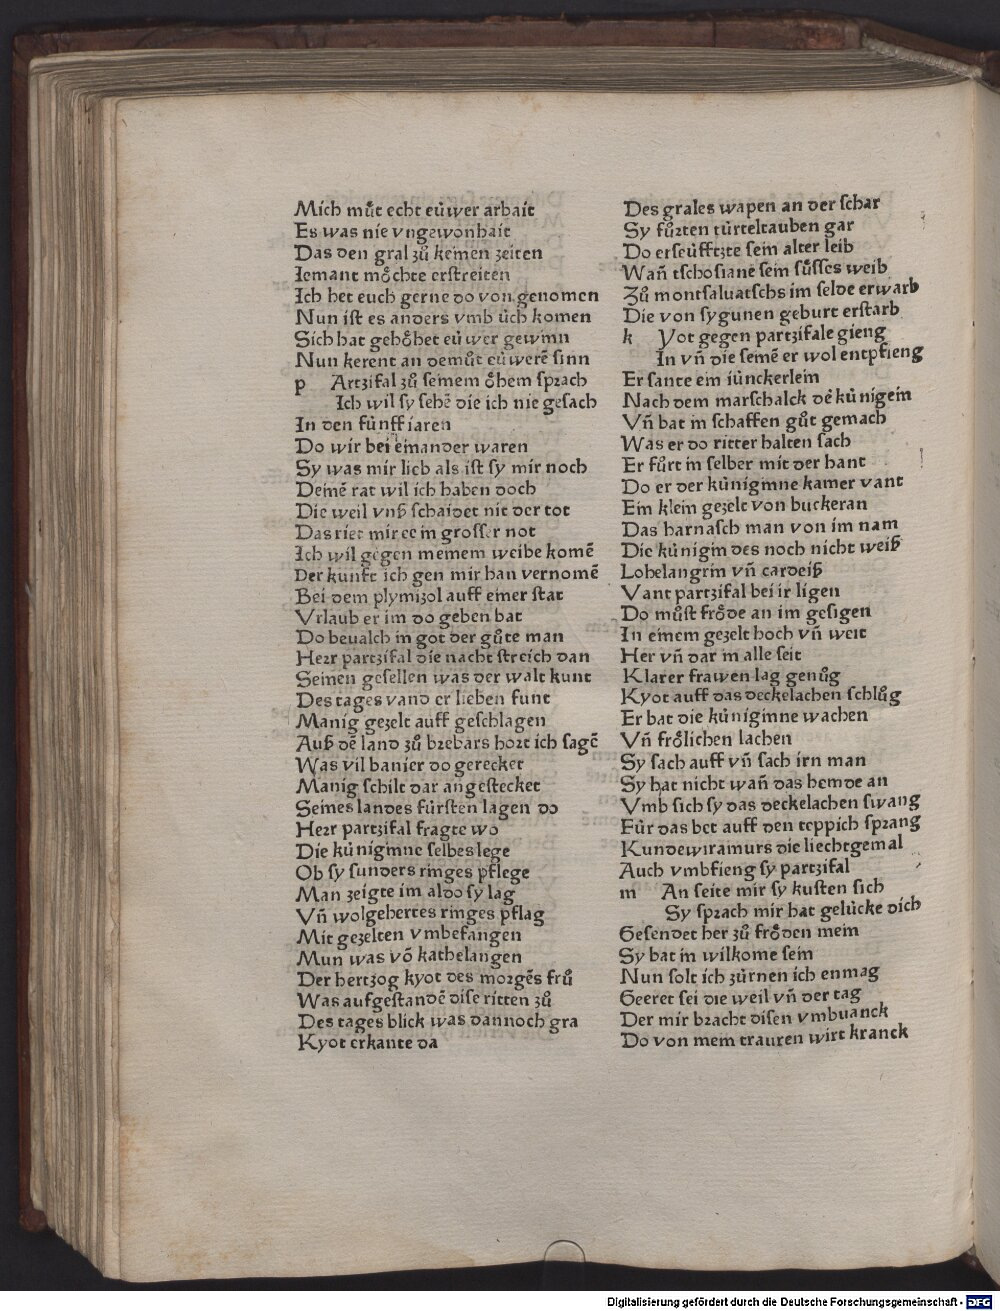 Mich můt echt eüwer arbait
Es was nie vngewonhait
Das den gral zů keinen zeiten
Iemant möchte erstreiten
Ich het euch gerne do von genomen
Nun ist es anders vmb üch komen
Sich hat gehöhet eüwer gewinn
Nun kerent an demůt eüwerē sinn
p Artzifal zů seinem öhem sprach
Ich wil sy sehē die ich nie gesach
In den fünff iaren
Do wir bei einander waren
Sy was mir lieb als ist sy mir noch
Deinē rat wil ich haben doch
Die weil vnß schaidet nit der tot
Das riet mir ee in grosser not
Ich wil gegen meinem weibe komē
Der kunft ich gen mir han vernomē
Bei dem plymizol auff einer stat
Vrlaub er im do geben bat
Do beualch in got der gůte man
Herr partzifal die nacht streich dan
Seinen gesellen was der walt kunt
Des tages vand er lieben funt
Manig gezelt auff geschlagen
Auß dē land zů brebars hort ich sagē
Was vil banier do gerecket
Manig schilt dar angestecket
Seines landes fürsten lagen do
Herr partzifal fragte wo
Die küniginne selbes lege
Ob sy sunders ringes pflege
Man zeigte im aldo sy lag
Vñ wolgehertes ringes pflag
Mit gezelten vmbefangen
Mun was vō kathelangen
Der hertzog kyot des morgēs frů
Was aufgestandē dise ritten zů
Des tages blick was dannoch gra
Kyot erkante da
Des grales wapen an der schar
Sy fůrten türteltauben gar
Do erseüfftzte sein alter leib
Wañ tschosiane sein sůsses weib
Zů montsaluatschs im selde erwarb
Die von sygunen geburt erstarb
k Yot gegen partzifale gieng
In vñ die seinē er wol entpfieng
Er sante ein iünckerlein
Nach dem marschalck dē künigein
Vñ bat in schaffen gůt gemach
Was er do ritter halten sach
Er fůrt in selber mit der hant
Do er der küniginne kamer vant
Ein klein gezelt von buckeran
Das harnasch man von im nam
Die künigin des noch nicht weiß
Lohelangrin vñ cardeiß
Vant partzifal bei ir ligen
Do můst fröde an im gesigen
In einem gezelt hoch vñ weit
Her vñ dar in alle seit
Klarer frawen lag genůg
Kyot auff das deckelachen schlůg
Er bat die küniginne wachen
Vñ frölichen lachen
Sy sach auff vñ sach irn man
Sy hat nicht wañ das hemde an
Vmb sich sy das deckelachen swang
Für das bet auff den teppich sprang
Kundewiramurs die liechtgemal
Auch vmbfieng sy partzifal
m An seite mir sy kusten sich
Sy sprach mir hat gelücke dich
Gesendet her zů fröden mein
Sy bat in wilkome sein
Nun solt ich zürnen ich enmag
Geeret sei die weil vñ der tag
Der mir bracht disen vmbuanck
Do von mein trauren wirt kranck
Digitalisierung gefördert durch die Deutsche Forschungsgemeinschaft - DFG